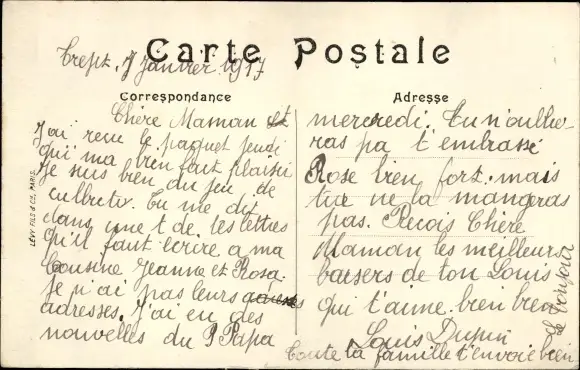 Carte Postale
Crept, 7 Janvier 1917
Correspondance
Chère Maman
J'ai recu le paquet jeudi
qui ma bien fait plaisir
Je suis bien du jeu de
culbuto. Tu me dit
dans une t de tes lettres
qu'il faut écrire a ma
Cousine Jeanne et Rosa.
Je n'ai pas leurs
adresses. J'ai eu des
nouvelles du P Papa
Adresse
mercredi. Tu n'oublie-
ras pa t'embrassé
Rose bien fort. mais
tue ne la mangeras
pas. Recois Chère
Maman les meilleurs
baisers de ton Louis
qui t'aime bien bien
Louis Dupin
Toute la famille t'envoie bien
le bonjour
LÉVY FILS & Cie, PARIS.